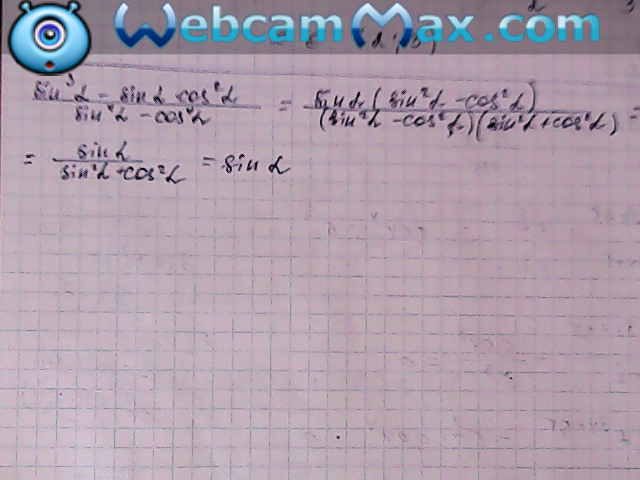 WebcamMax.com
(sin³α - sinα cos²α)/(sin⁴α - cos⁴α) = (sinα (sin²α - cos²α))/((sin²α - cos²α)(sin²α + cos²α)) =
= sinα/(sin²α + cos²α) = sin α